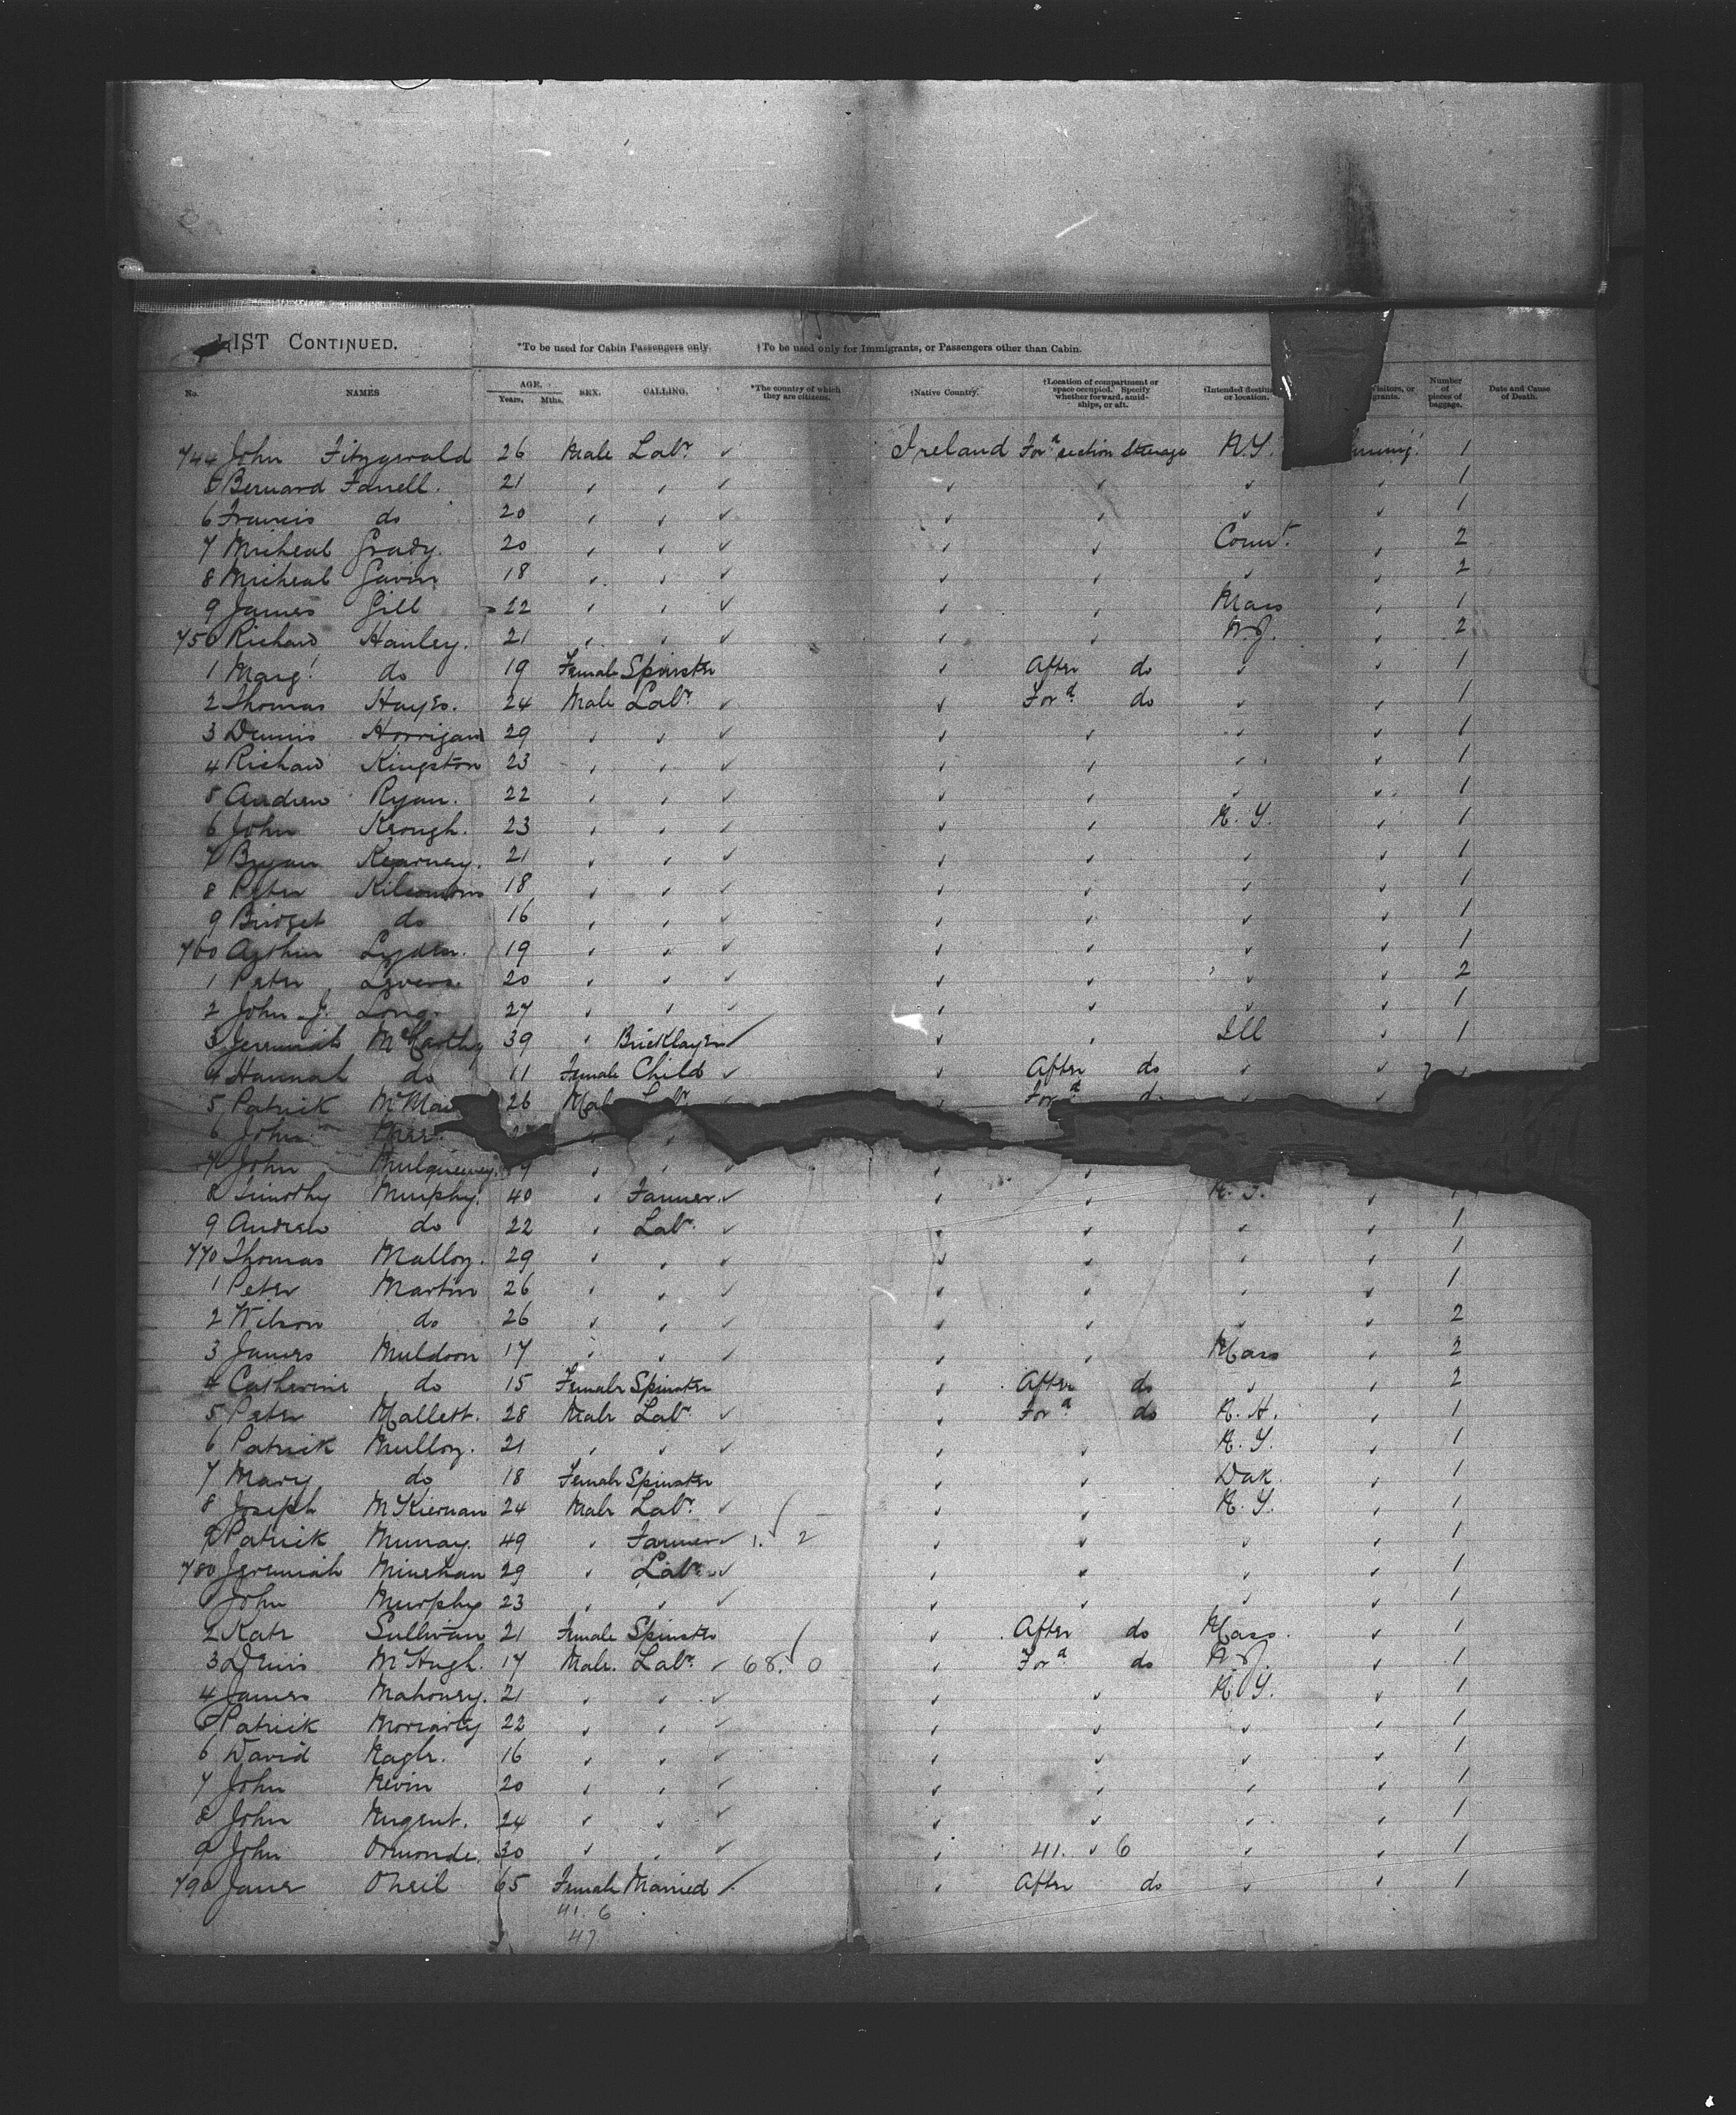 LIST CONTINUED.
*To be used for Cabin Passengers only. †To be used only for Immigrants, or Passengers other than Cabin.
No. NAMES AGE. Years, Mths. SEX. CALLING. *The country of which they are citizens. †Native Country. †Location of compartment or space occupied. Specify whether forward, amidships, or aft. †Intended destina or location. isitors, or grants. Number of pieces of baggage. Date and Cause of Death.
744 John Fitzgerald 26 Male Labr. ✓ Ireland Ford section Steerage N.Y. 1
5 Bernard Farrell. 21 ✓ ✓ ✓ ✓ ✓ ✓ ✓ 1
6 Francis do 20 ✓ ✓ ✓ ✓ ✓ ✓ ✓ 1
7 Micheal Grady. 20 ✓ ✓ ✓ ✓ ✓ Connt. ✓ 2
8 Micheal Gavin 18 ✓ ✓ ✓ ✓ ✓ ✓ ✓ 2
9 James Gill 22 ✓ ✓ ✓ ✓ ✓ Mass ✓ 1
750 Richard Hanley. 21 ✓ ✓ ✓ ✓ ✓ N.J. ✓ 2
1 Margt. do 19 Female Spinster ✓ After do ✓ ✓ 1
2 Thomas Hayes. 24 Male Labr. ✓ ✓ Ford do ✓ ✓ 1
3 Dennis Horrigan 29 ✓ ✓ ✓ ✓ ✓ ✓ ✓ 1
4 Richard Kingston 23 ✓ ✓ ✓ ✓ ✓ ✓ ✓ 1
5 Andrew Ryan. 22 ✓ ✓ ✓ ✓ ✓ ✓ ✓ 1
6 John Keough. 23 ✓ ✓ ✓ ✓ ✓ N.Y. ✓ 1
7 Bryan Kearney. 21 ✓ ✓ ✓ ✓ ✓ ✓ ✓ 1
8 Peter 18 ✓ ✓ ✓ ✓ ✓ ✓ ✓ 1
9 Bridget do 16 ✓ ✓ ✓ ✓ ✓ ✓ ✓ 1
760 Arthur Lyden. 19 ✓ ✓ ✓ ✓ ✓ ✓ ✓ 1
1 Peter 20 ✓ ✓ ✓ ✓ ✓ ✓ ✓ 2
2 John J. Long. 27 ✓ ✓ ✓ ✓ ✓ ✓ ✓ 1
3 Jeremiah McCarthy 39 ✓ Bricklayer ✓ ✓ ✓ Ill ✓ 1
4 Hannah do 11 Female Child ✓ ✓ After do ✓ ✓
5 Patrick 26 Male Labr ✓ Ford do
6 John
7 John Mulqueeney. ✓ ✓ ✓ ✓ ✓
8 Timothy Murphy. 40 ✓ Farmer ✓ ✓ ✓ ✓ 1
9 Andrew do 22 ✓ Labr. ✓ ✓ ✓ ✓ ✓ 1
770 Thomas Malloy. 29 ✓ ✓ ✓ ✓ ✓ ✓ ✓ 1
1 Peter Martin 26 ✓ ✓ ✓ ✓ ✓ ✓ ✓ 1
2 Wilson do 26 ✓ ✓ ✓ ✓ ✓ ✓ ✓ 2
3 James Muldoon 17 ✓ ✓ ✓ ✓ ✓ Mass ✓ 2
4 Catherine do 15 Female Spinster ✓ After do ✓ ✓ 2
5 Peter Mallett. 28 Male Labr. ✓ ✓ Ford do N.H. ✓ 1
6 Patrick Mulloy. 21 ✓ ✓ ✓ ✓ ✓ N.Y. ✓ 1
7 Mary do 18 Female Spinster ✓ ✓ Dak. ✓ 1
8 Joseph McKiernan 24 Male Labr. ✓ ✓ ✓ N.Y. ✓ 1
9 Patrick Murray. 49 ✓ Farmer ✓ 1. 2 ✓ ✓ ✓ ✓ 1
780 Jeremiah Minehan 29 ✓ Labr ✓ ✓ ✓ ✓ ✓ 1
1 John Murphy 23 ✓ ✓ ✓ ✓ ✓ ✓ ✓ 1
2 Kate Sullivan 21 Female Spinster ✓ After do Mass. ✓ 1
3 Denis McHugh. 17 Male. Labr. ✓ 68. 0 ✓ Ford do N.J. ✓ 1
4 James Mahoney. 21 ✓ ✓ ✓ ✓ ✓ N.Y. ✓ 1
5 Patrick Moriarty 22 ✓ ✓ ✓ ✓ ✓ ✓ ✓ 1
6 David Nagle. 16 ✓ ✓ ✓ ✓ ✓ ✓ ✓ 1
7 John Nevin 20 ✓ ✓ ✓ ✓ ✓ ✓ ✓ 1
8 John Nugent. 24 ✓ ✓ ✓ ✓ ✓ ✓ ✓ 1
9 John Ormonde. 30 ✓ ✓ ✓ ✓ 41. ✓ 6 ✓ ✓ 1
790 Jane O'Neil 65 Female Married ✓ ✓ After do ✓ ✓ 1
41. 6
47